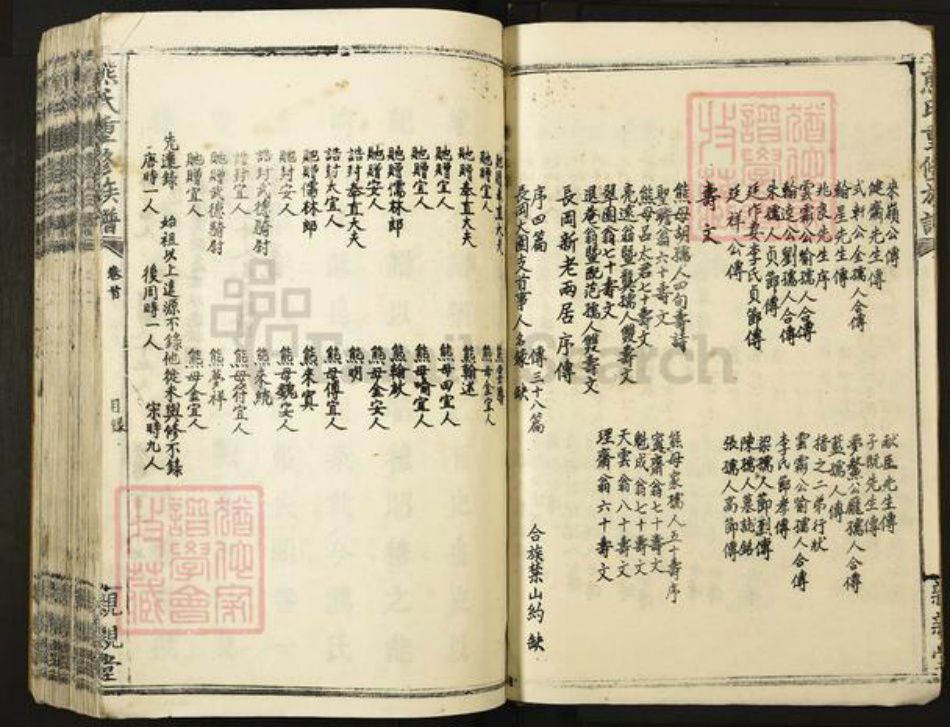 熊氏重修族譜
來嶺公傳
獻臣先生傳
健齋先生傳
子既先生傳
式軒公金孺人合傳
夢鰲公龎孺人合傳
繪星先生傳
藍孺人傳
兆良先生序
措之二弟行狀
雲霨公喻孺人合傳
雲霨公喻孺人合傳
翰遠公劉孺人合傳
李氏節孝傳
朱孺人貞節傳
梁孺人節烈傳
廷作妻李氏貞節傳
陳孺人墓誌銘
廷祥公傳
張孺人高節傳
壽文
熊母胡孺人四旬壽詩
熊母袁孺人五十壽序
聖瞻翁六十壽文
寔齋翁七十壽文
熊母呂太君七十壽文
魁成翁七十壽文
亮遠翁暨龔孺人雙壽文
天雲翁八十壽文
翠園翁七十壽文
理齋翁六十壽文
退菴翁暨配范孺人雙壽文
長岡新老兩居序傳
序四篇
傳三十八篇
合族禁山約 缺
長岡大園支首事人名錄 缺
貤贈奉直大夫
熊
貤贈宜人
熊母金宜人
貤贈奉直大夫
熊翰述
貤贈宜人
熊母田宜人
貤贈宜人
熊母喻宜人
貤贈儒林郎
熊翰猷
貤贈安人
熊母金安人
誥封奉直大夫
熊明
誥封太宜人
熊母傅宜人
貤贈儒林郎
熊來寘
貤封安人
熊母魏安人
誥封武德騎尉
熊來統
誥封宜人
熊母符宜人
貤贈武德騎尉
熊夢祥
貤贈宜人
熊母金宜人
先達錄
始祖以上遠源不錄他徙未與修不錄
唐時一人
後周時一人
宋時九人
熊氏重修族譜
卷首
目錄
親親堂
猶他家譜學會收藏
猶他家譜學會收藏
FamilySearch